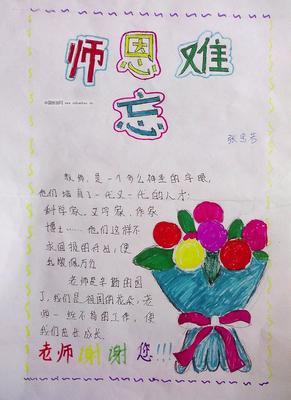 师恩难
忘
张思芳
教师,是一个多么神圣的字眼,
他们培育了一代又一代的人才:
科学家、文学家、作家
博士……他们这样不
永回报的付出,使
我敬佩万分
老师是辛勤的园
丁,我们是祖国的花朵,老
师一丝不苟的工作,使
我们茁壮成长.
老师谢谢您!!!